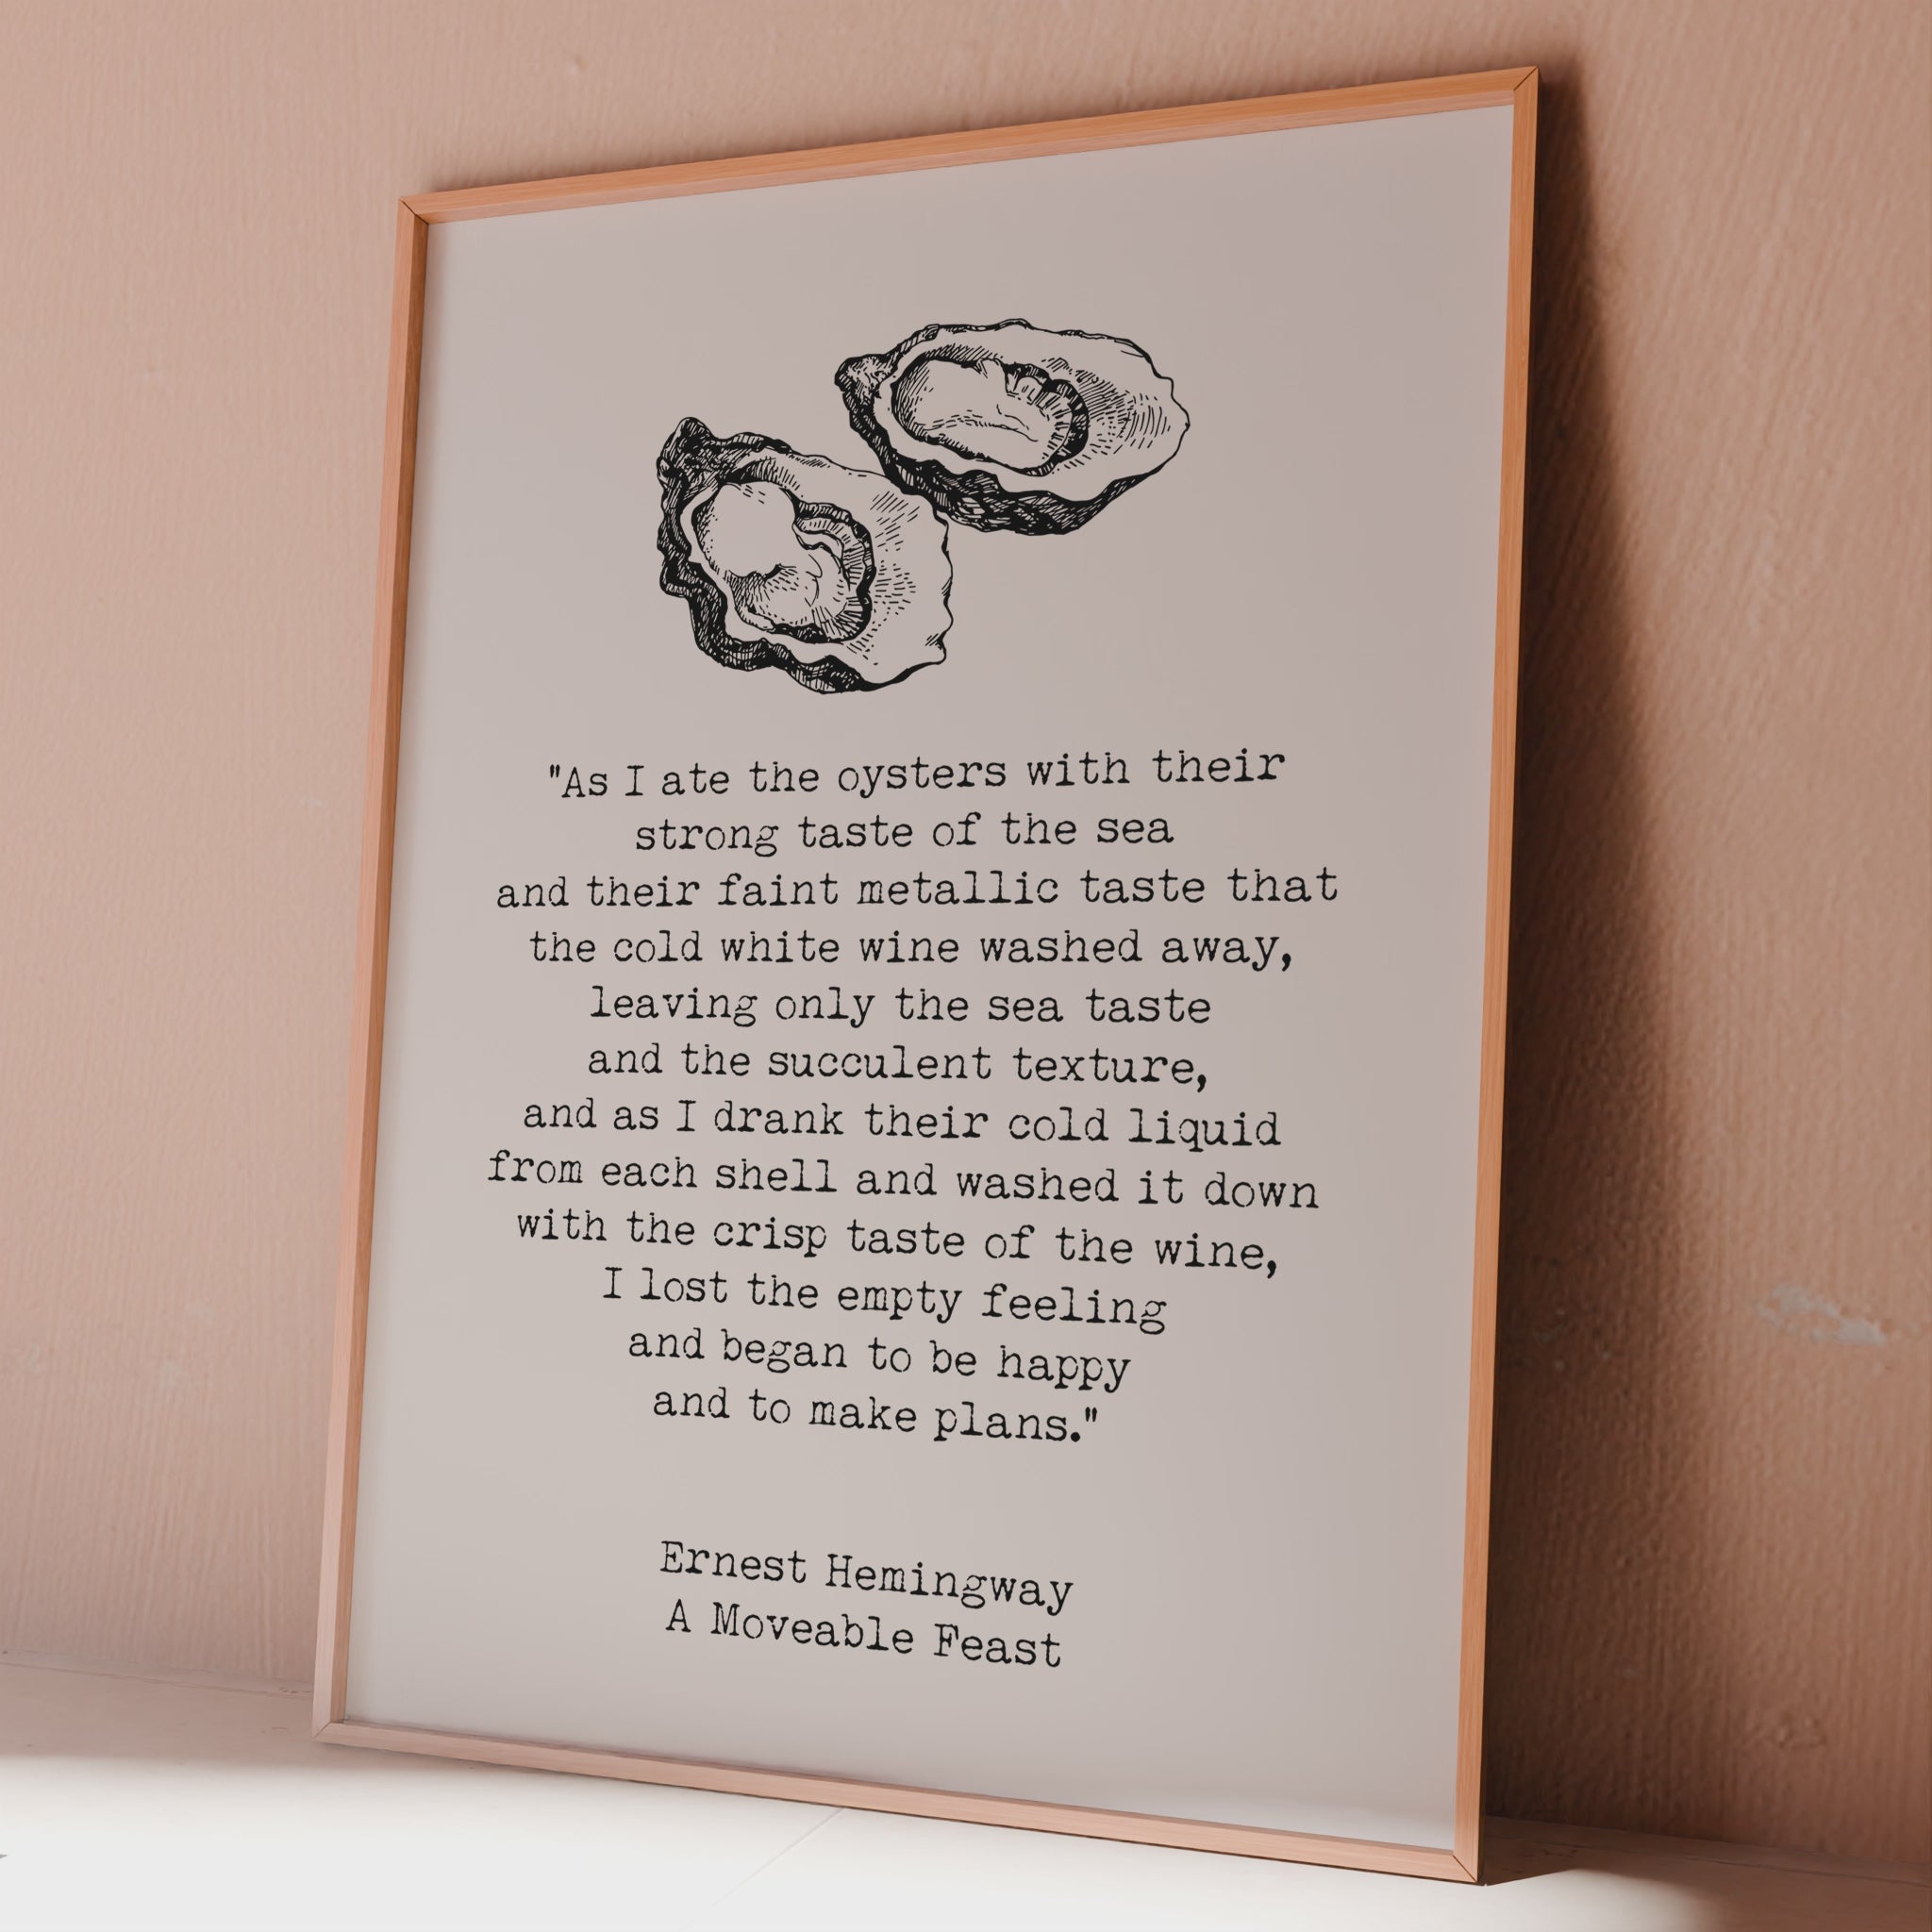 "As I ate the oysters with their
strong taste of the sea
and their faint metallic taste that
the cold white wine washed away,
leaving only the sea taste
and the succulent texture,
and as I drank their cold liquid
from each shell and washed it down
with the crisp taste of the wine,
I lost the empty feeling
and began to be happy
and to make plans."
Ernest Hemingway
A Moveable Feast